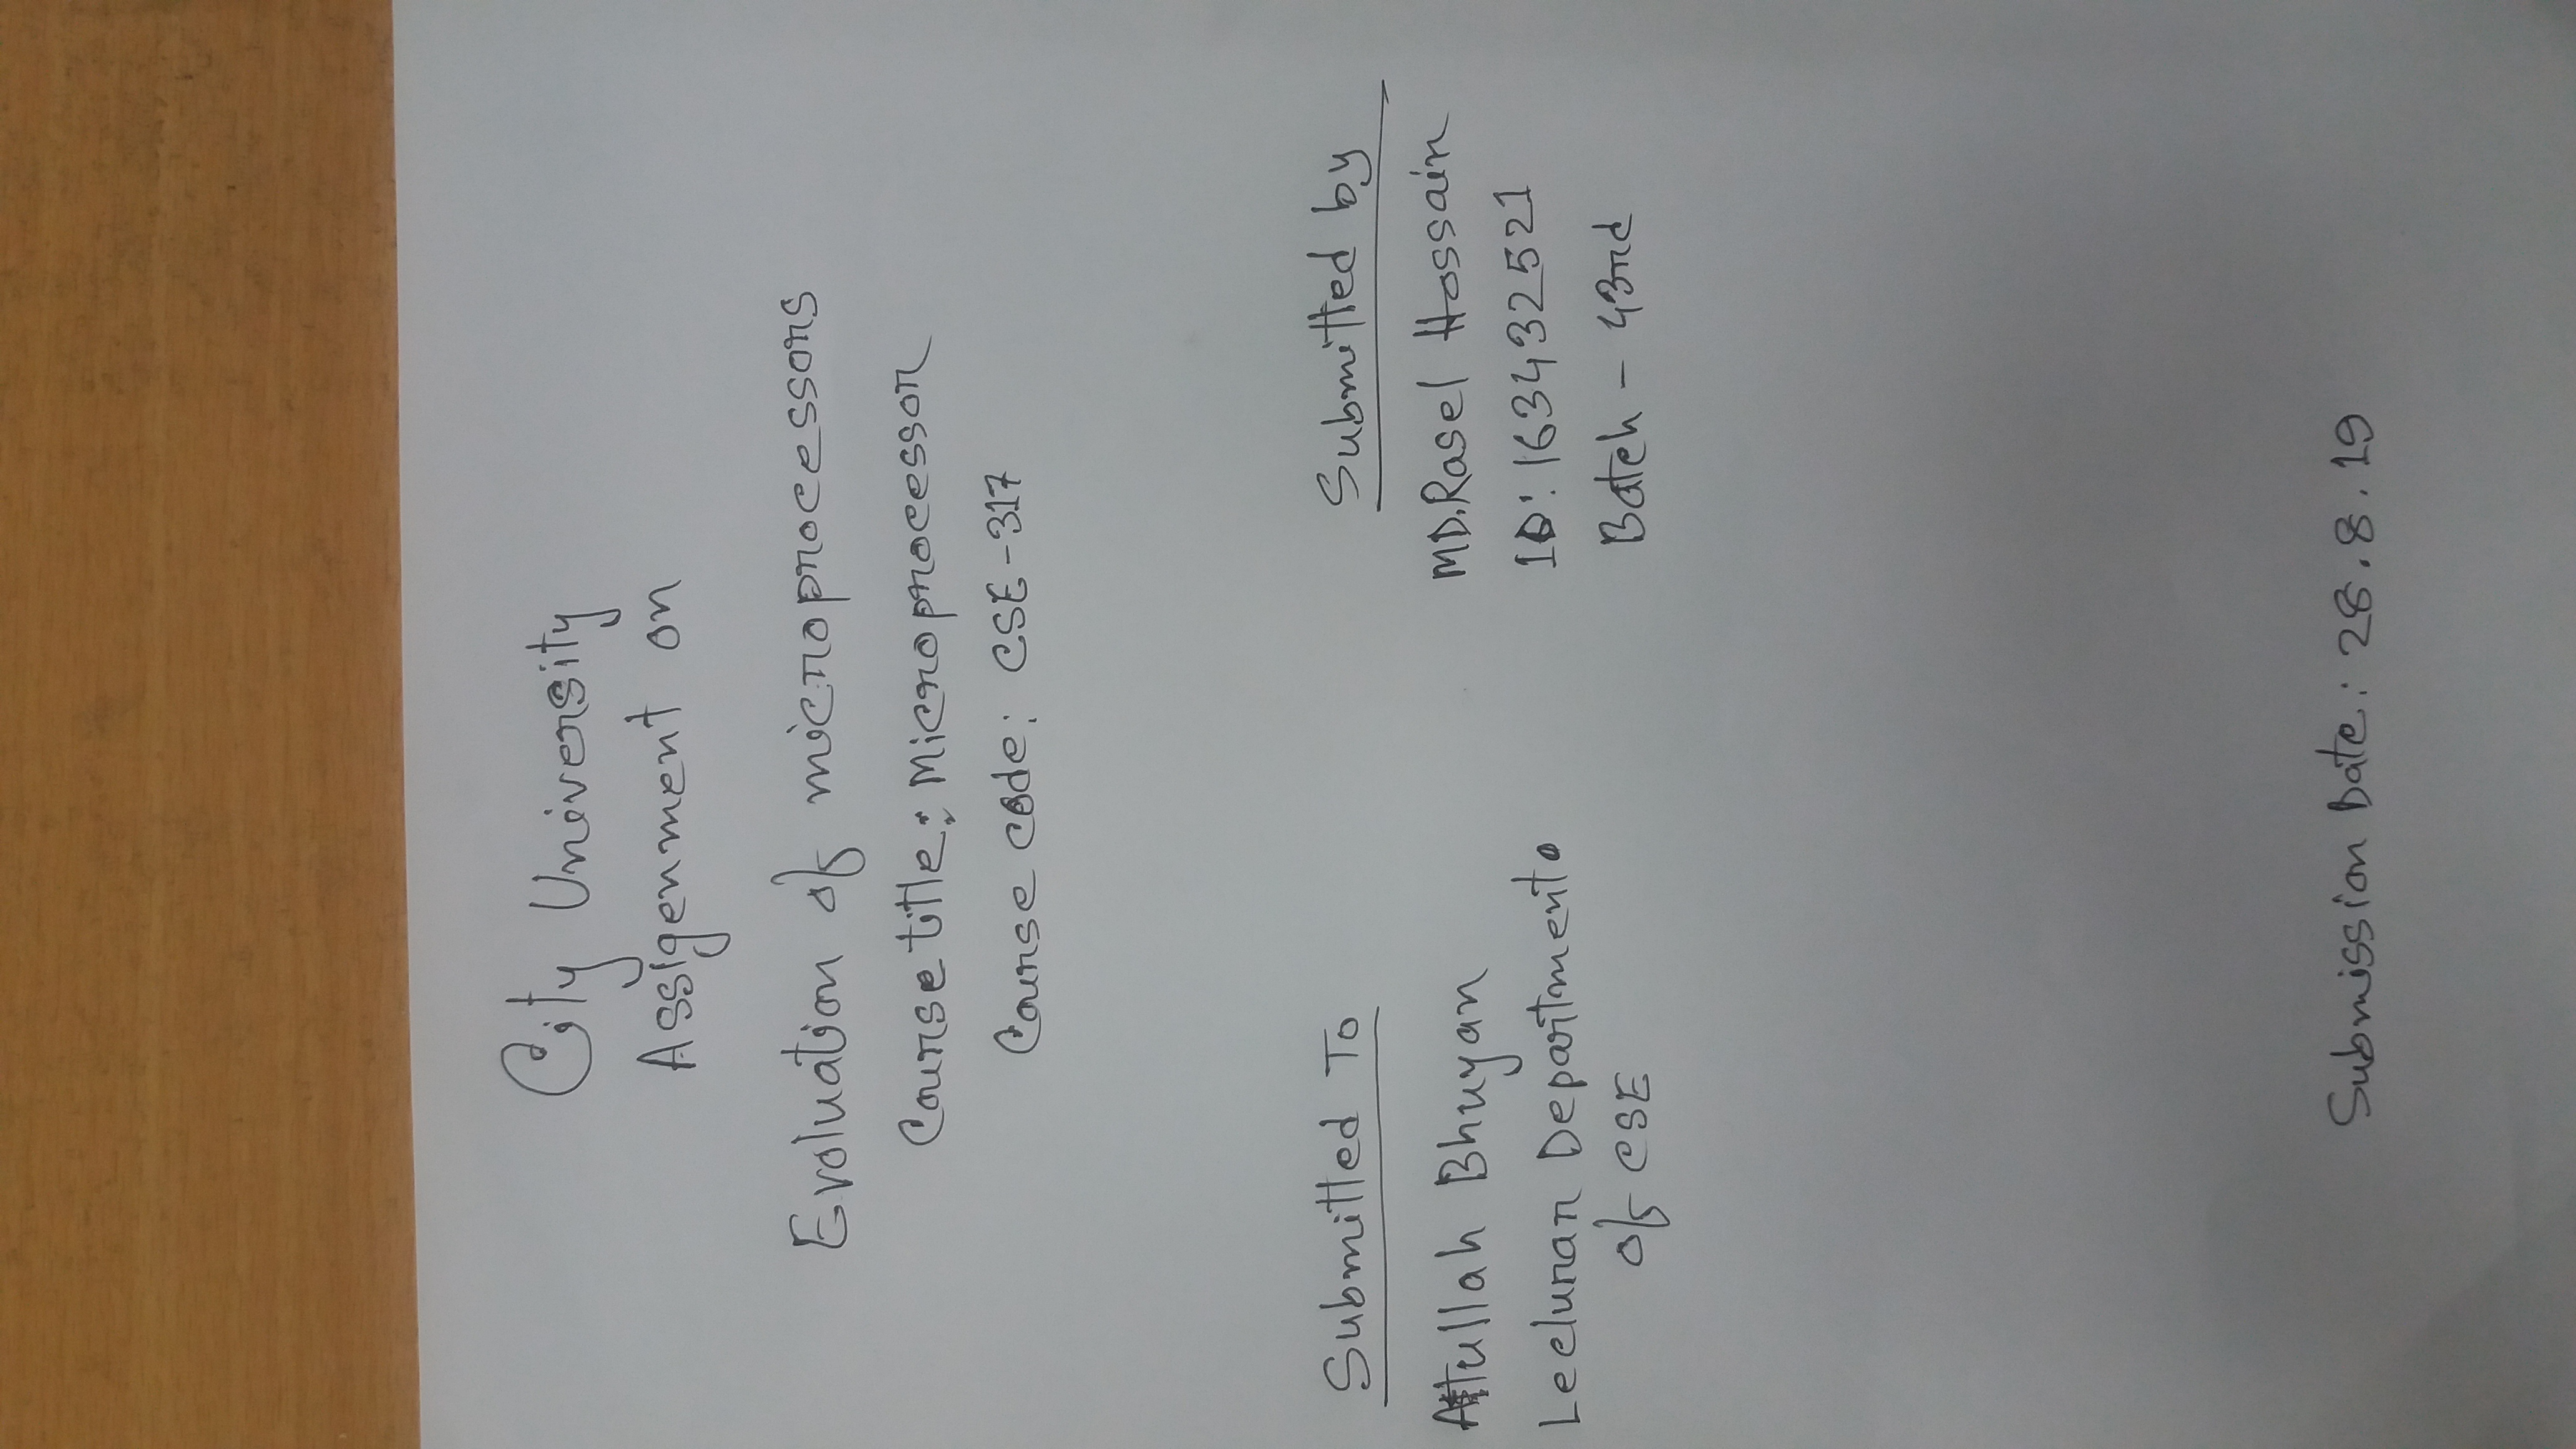 City University
Assigenment on
Evoluation of microprocessors
Course title: Microprocessor
Course code: CSE-317
Submitted To
Attullah Bhuyan
Leelurar Department
of CSE
Submitted by
MD.Rasel Hossain
ID: 163432521
Batch - 43rd
Submission Date: 28.8.19